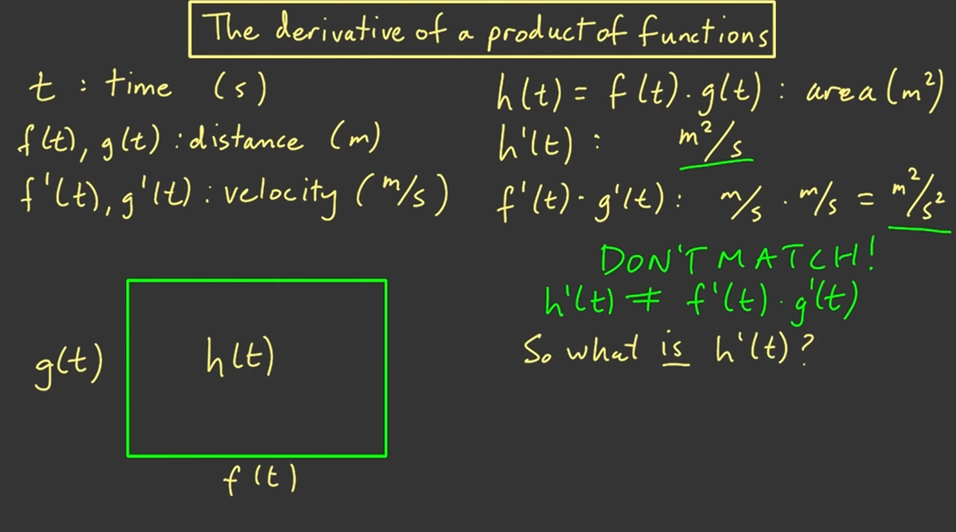 The derivative of a product of functions
t : time (s)
f(t), g(t) : distance (m)
f'(t), g'(t) : velocity (m/s)
h(t) = f(t) · g(t) : area (m²)
h'(t) : m²/s
f'(t) · g'(t) : m/s · m/s = m²/s²
DON'T MATCH!
h'(t) ≠ f'(t) · g'(t)
So what is h'(t)?
g(t)
h(t)
f(t)